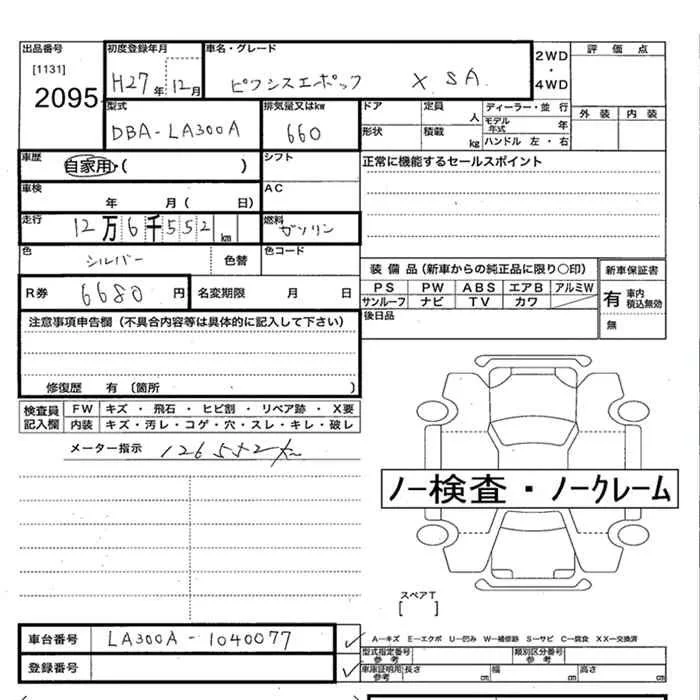 出品番号
[1131]
2095
初度登録年月
H27年12月
車名・グレード
ピクシスエポック X SA
2WD
・
4WD
評価点
外装 内装
型式
DBA-LA300A
排気量又はkw
660
ドア
定員 人
形状
積載 kg
ディーラー・並行
モデル年式 年
ハンドル 左・右
車歴
自家用・( )
シフト
正常に機能するセールスポイント
車検
年 月( 日)
AC
走行
12万6千552km
燃料
ガソリン
色
シルバー
色替
色コード
R券 6680円
名変期限 月 日
装備品(新車からの純正品に限り○印)
PS PW ABS エアB アルミW
サンルーフ ナビ TV カワ
新車保証書
有 車内積込無効
無
後日品
注意事項申告欄(不具合内容等は具体的に記入して下さい)
修復歴 有 (箇所 )
検査員記入欄
FW キズ・飛石・ヒビ割・リペア跡・X要
内装 キズ・汚レ・コゲ・穴・スレ・キレ・破レ
メーター指示 126552km
ノー検査・ノークレーム
スペアT
[ ]
車台番号 LA300A-1040077
登録番号
A―キズ E―エクボ U―凹み W―補修跡 S―サビ C―腐食 XX―交換済
型式指定番号 参考
類別区分番号 参考
車庫証明用 参考
長さ cm 幅 cm 高さ cm